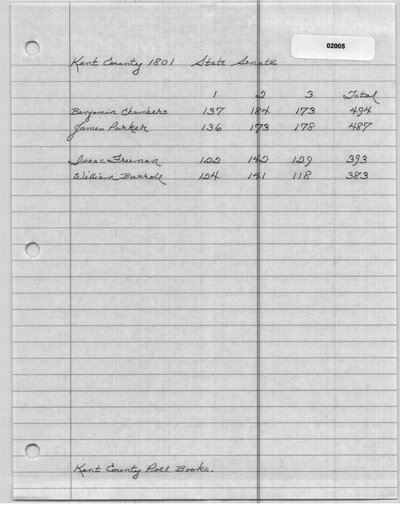 02005
Kent County 1801 State Senate
1 2 3 Total
Benjamin Chambers 137 184 173 494
James Parker 136 173 178 487
Isaac Freeman 122 142 129 393
William Barroll 124 141 118 383
Kent County Poll Books.